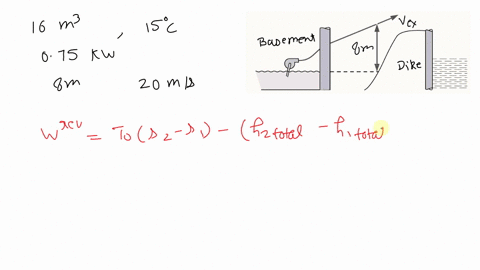 16 m³, 15°C
0.75 KW
8m 20 m/s
Basement
Vex
8m
Dike
w^rev = T₀ (s₂ - s₁) - (h₂ total - h₁ total